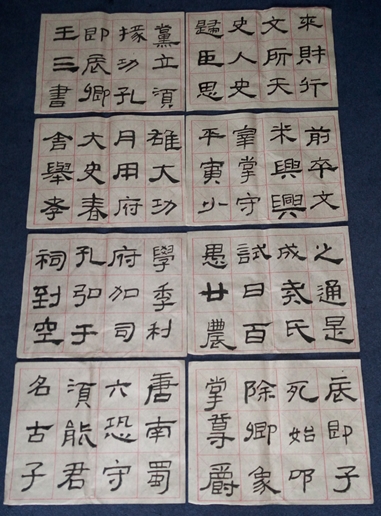 來財行
文所天
史人史
歸臣思
黨立須
掾功孔
即辰卿
王三書
前卒文
米興興
宰掌守
平寅少
雄大功
月用府
大史春
舍舉孝
之通是
成堯氏
試日百
愚廿農
學季利
府加司
孔弘于
祠到空
底即子
死始叩
除卿象
掌尊爵
唐南蜀
六恐守
須能君
名古子